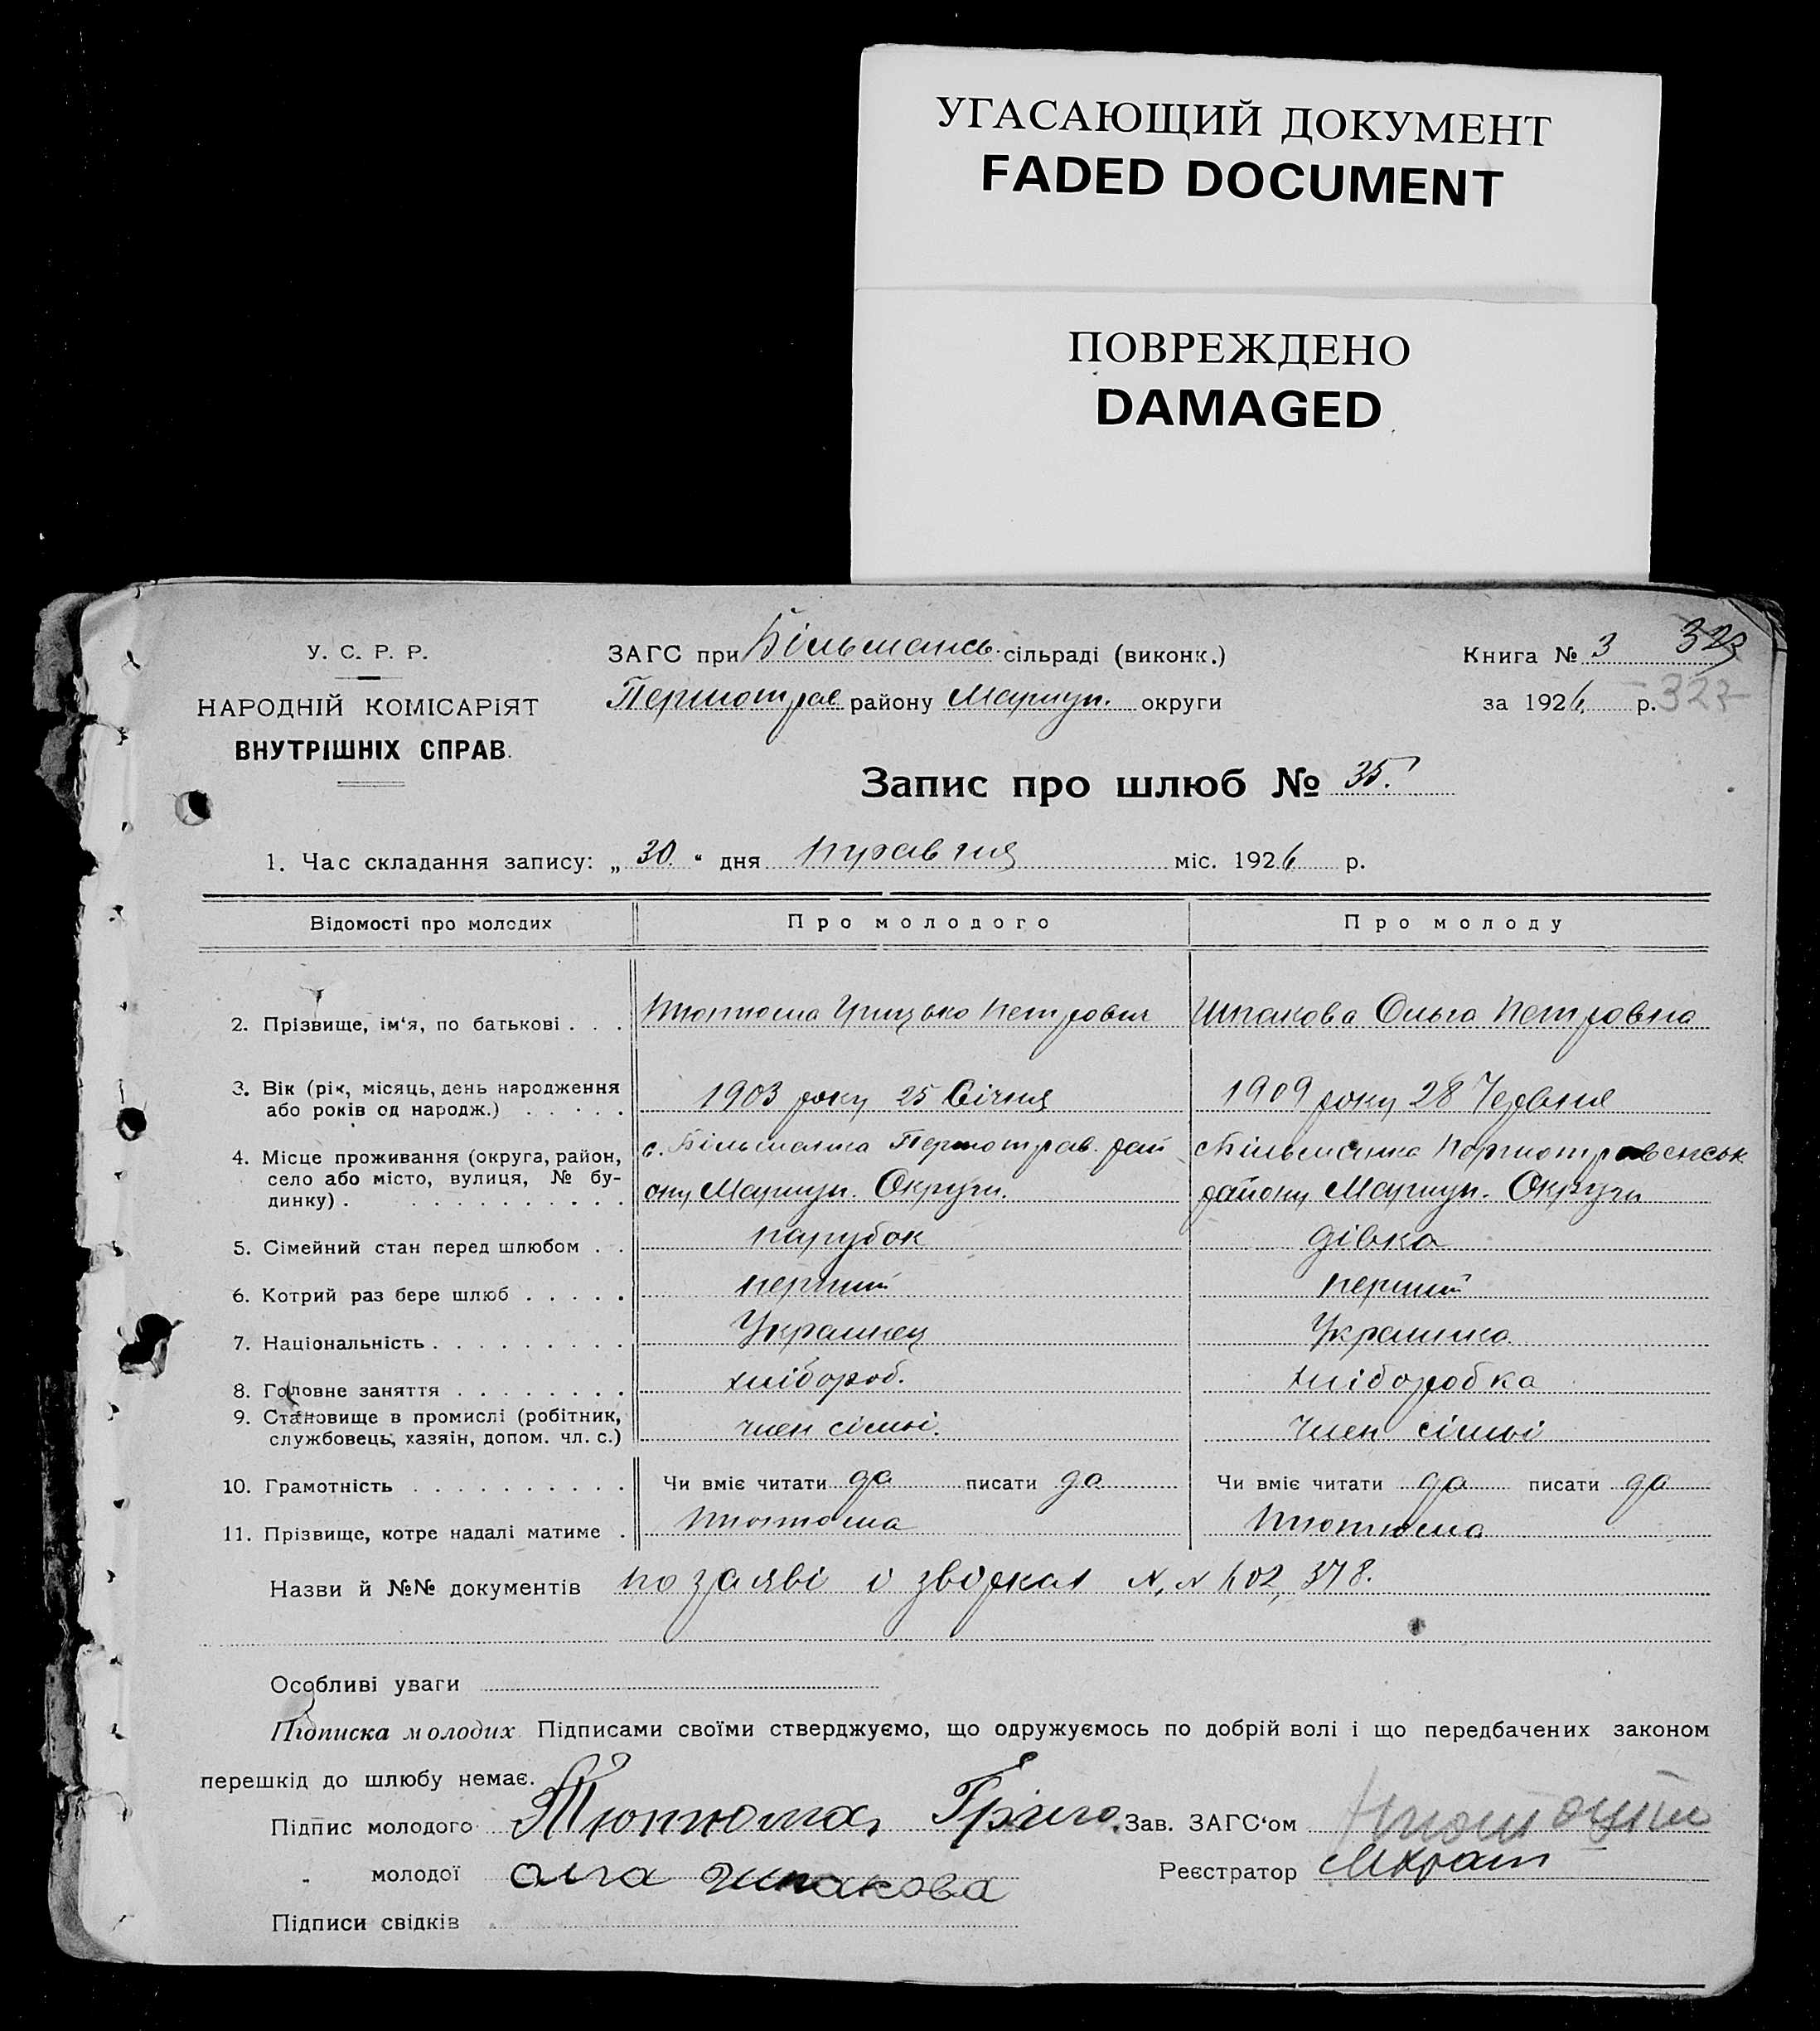 УГАСАЮЩИЙ ДОКУМЕНТ
FADED DOCUMENT
ПОВРЕЖДЕНО
DAMAGED
У. С. Р. Р.
НАРОДНІЙ КОМІСАРІЯТ
ВНУТРІШНІХ СПРАВ.
ЗАГС при Більмансь. сільраді (виконк.)
Першотрав району Маріуп. округи
Книга № 3 323
за 1926 р. 323
Запис про шлюб № 35.
1. Час складання запису: „30" дня травня міс. 1926 р.
Відомості про молодих Про молодого Про молоду
2. Прізвище, ім'я, по батькові . . . Тютюма Грицько Петрович Шпакова Ольга Петровна
3. Вік (рік, місяць, день народження
або років од народж.) . . . . . 1903 року 25 Січня 1909 року 28 Червня
4. Місце проживання (округа, район,
село або місто, вулиця, № бу-
динку) . . . . . . . . . .
с. Більманка Першотрав. рай
ону Маріуп. Округи.
с Більманка Першотравенськ
району Маріуп. Округи
5. Сімейний стан перед шлюбом . . парубок дівка
6. Котрий раз бере шлюб . . . . . перший перший
7. Національність . . . . . . . . . Украинец Украинка
8. Головне заняття . . . . . . . . хлібороб. хліборобка
9. Становище в промислі (робітник,
службовець, хазяін, допом. чл. с.) член сімьі. член сімьі
10. Грамотність . . . . . . . . . . Чи вміє читати да писати да Чи вміє читати да писати да
11. Прізвище, котре надалі матиме . Тютюма Тютюма
Назви й №№ документів по заяві і звідкам N, N 602, 378.
Особливі уваги
Підписка молодих Підписами своїми стверджуємо, що одружуємось по добрій волі і що передбачених законом
перешкід до шлюбу немає.
Підпис молодого Тютюма, Григо. Зав. ЗАГС'ом
" молодої Олга Шпакова Реєстратор
Підписи свідків